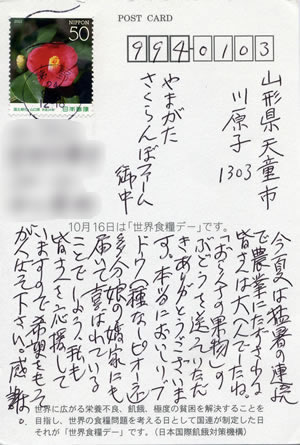 POST CARD
50
日本郵便
994-0103
山形県天童市
川原子
1303
やまがた
さくらんぼファーム
御中
10月16日は「世界食糧デー」です。
今夏は猛暑の連続
で農業にたずさわる
皆さんは大へんでしたね。
「おらえの果物」の
ぶどうを送っていただ
きありがとうございま
す。本当においしいブ
ドウ(種なしピオーネ)
多分娘の婚家にも
届いて喜ばれている
ことでしょう。我も
皆さんを応援して
いますので希望をもって
がんばって下さい。感謝。
世界に広がる栄養不良、飢餓、極度の貧困を解決することを
目指し、世界の食糧問題を考える日として国連が制定した日
それが「世界食糧デー」です。(日本国際飢餓対策機構)